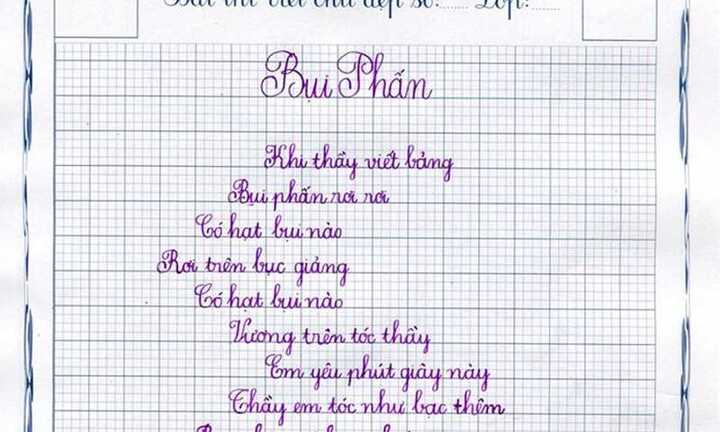 Bài thi viết chữ đẹp số: ...... Lớp: ......
Bụi Phấn
Khi thầy viết bảng
Bụi phấn rơi rơi
Có hạt bụi nào
Rơi trên bục giảng
Có hạt bụi nào
Vương trên tóc thầy
Em yêu phút giây này
Thầy em tóc như bạc thêm